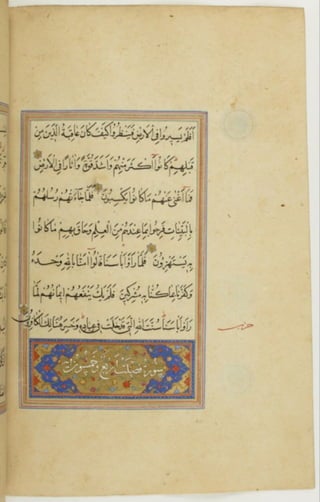 افلم يسيروا في الارض فينظروا كيف كان عاقبة الذين من
قبلهم كانوا اكثر منهم واشد قوة واثارا في الارض
فما اغنى عنهم ما كانوا يكسبون فلما جاءتهم رسلهم
بالبينات فرحوا بما عندهم من العلم وحاق بهم ما كانوا
به يستهزؤن فلما راوا باسنا قالوا امنا بالله وحده
وكفرنا بما كنا به مشركين فلم يك ينفعهم ايمانهم لما
راوا باسنا سنت الله التي قد خلت في عباده وخسر هنالك الكافرون
سورة فصلت اربع وخمسون اية
حزب